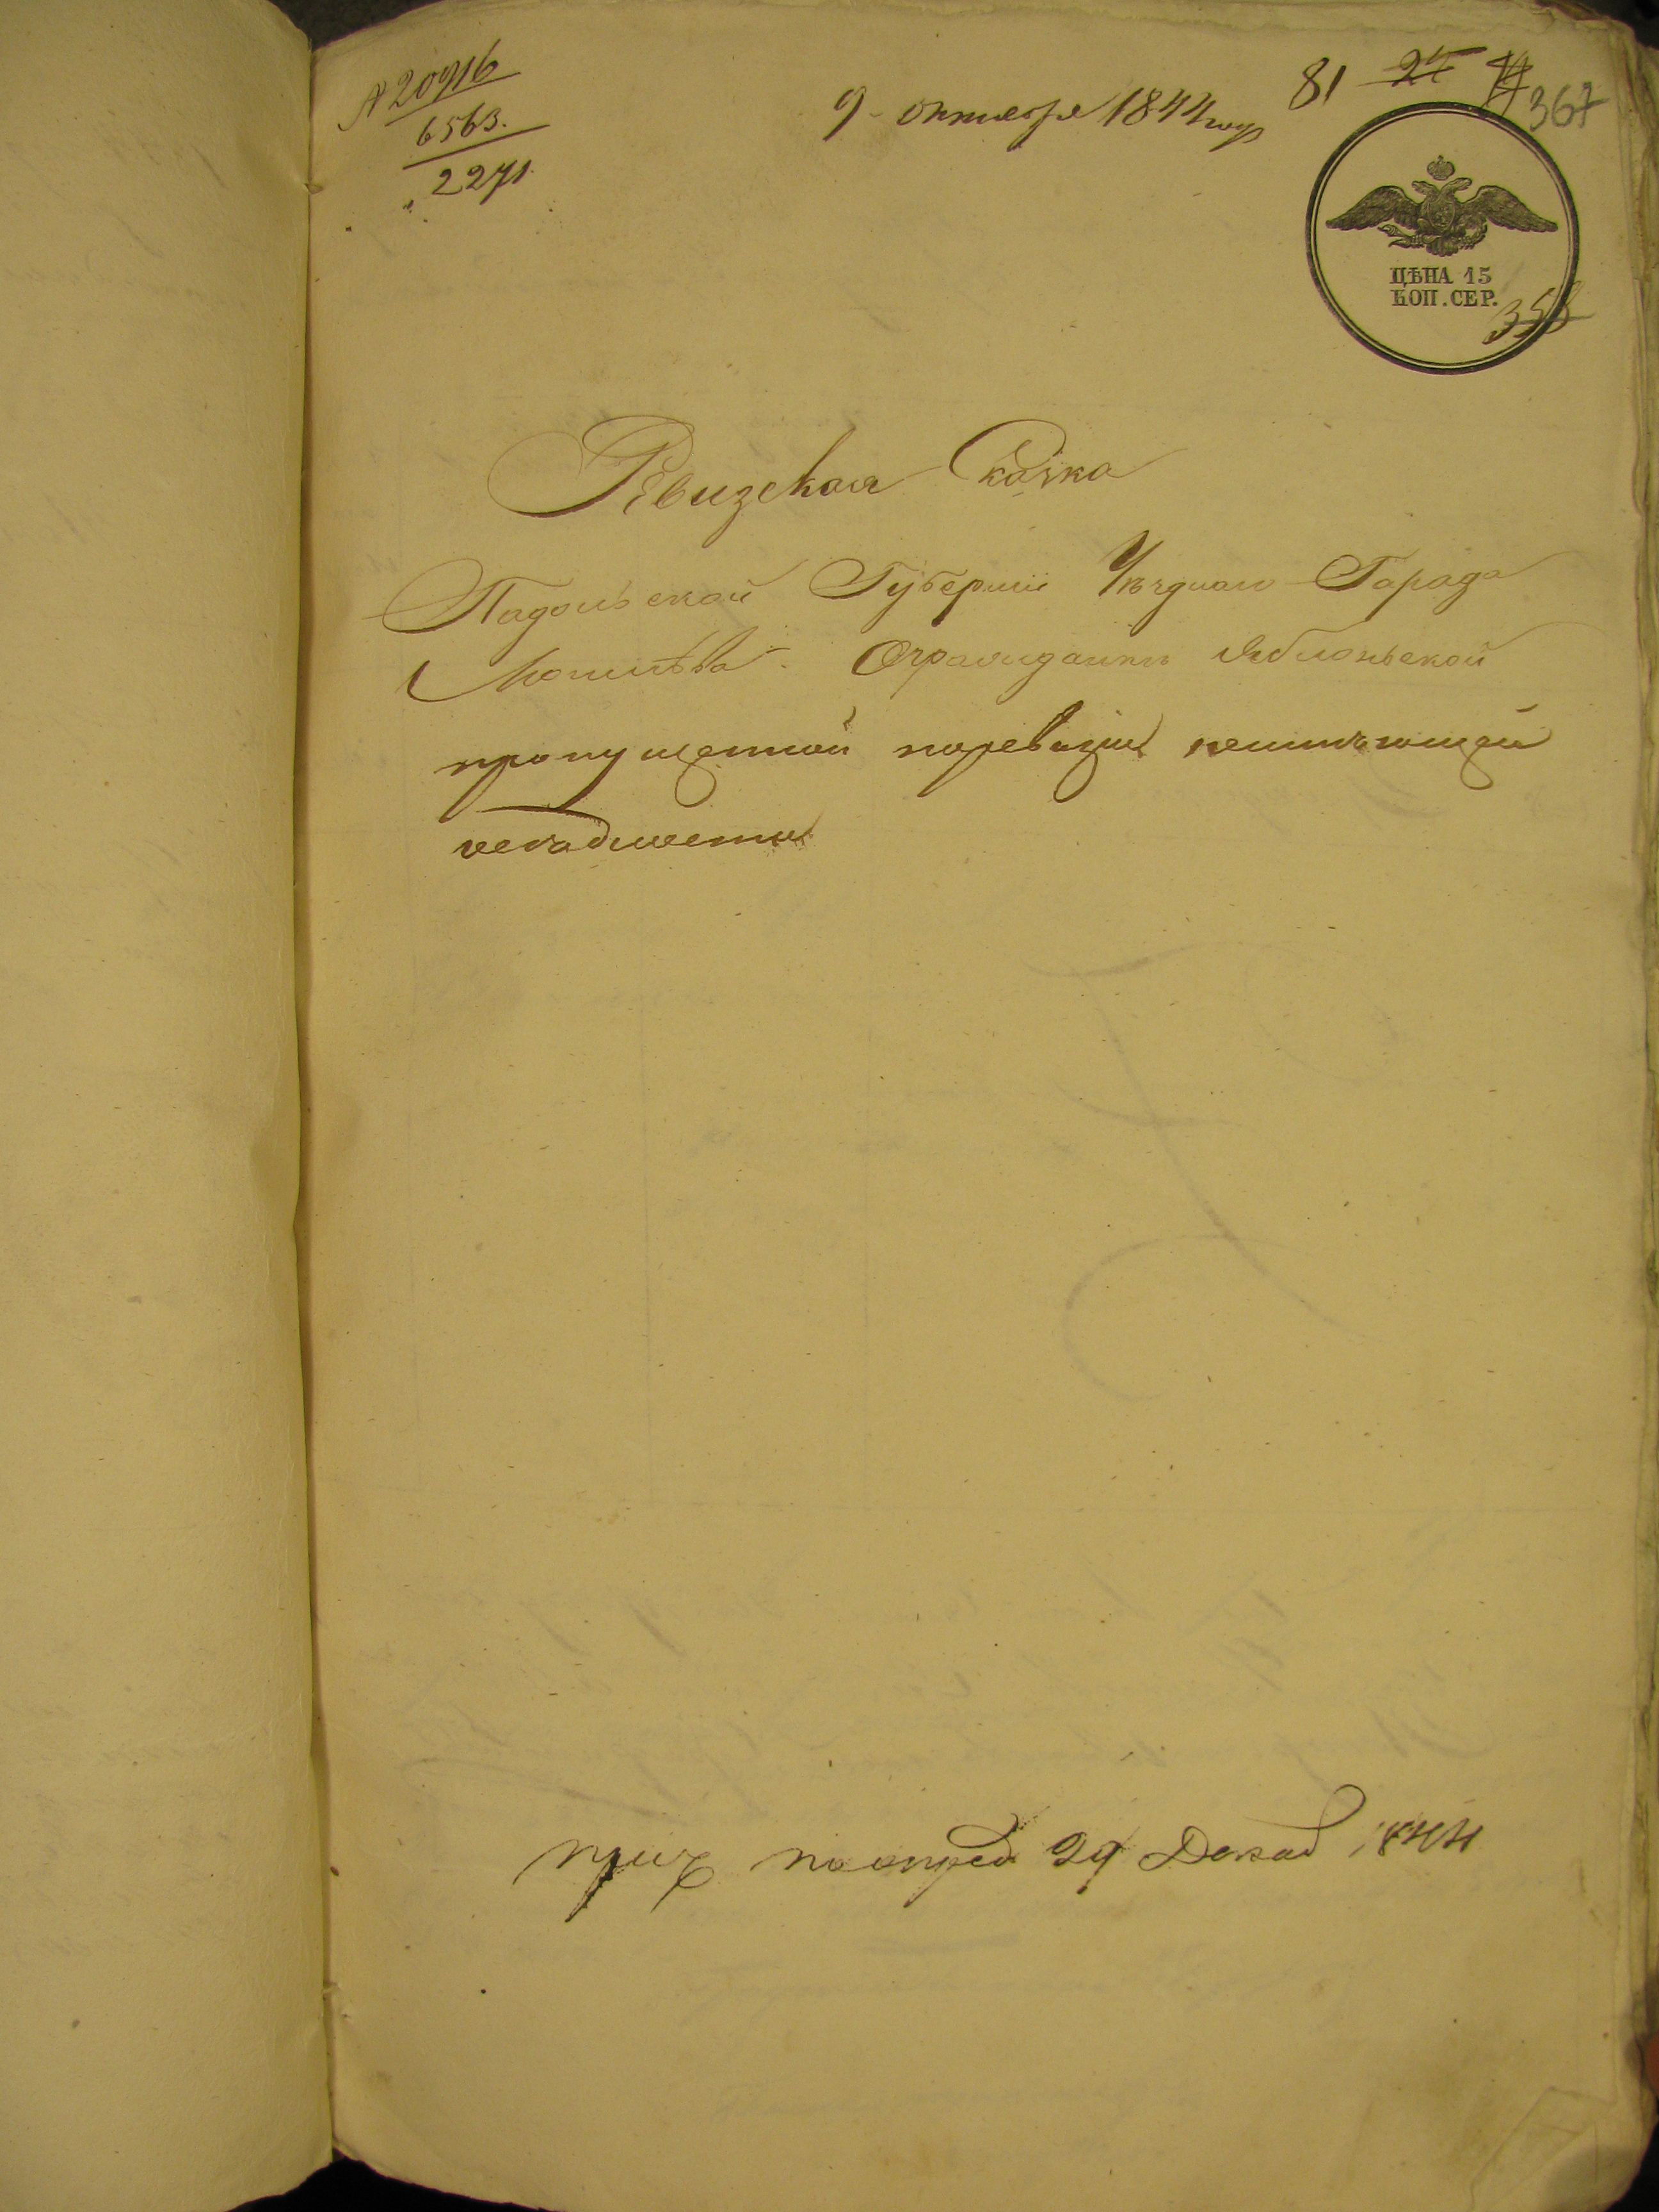 № 20916
6563.
2271.
9 октября 1844 году
81 27
367
ЦѢНА 15
КОП. СЕР.
358
Ревизская Скаска
Падольской Губернии Уѣзднаго Гарада
Могилѣва. О гражданкѣ Яблоньской
пропущенной поревизии неимѣющей
недвижемости
прич поопред 29 Декаб 1844